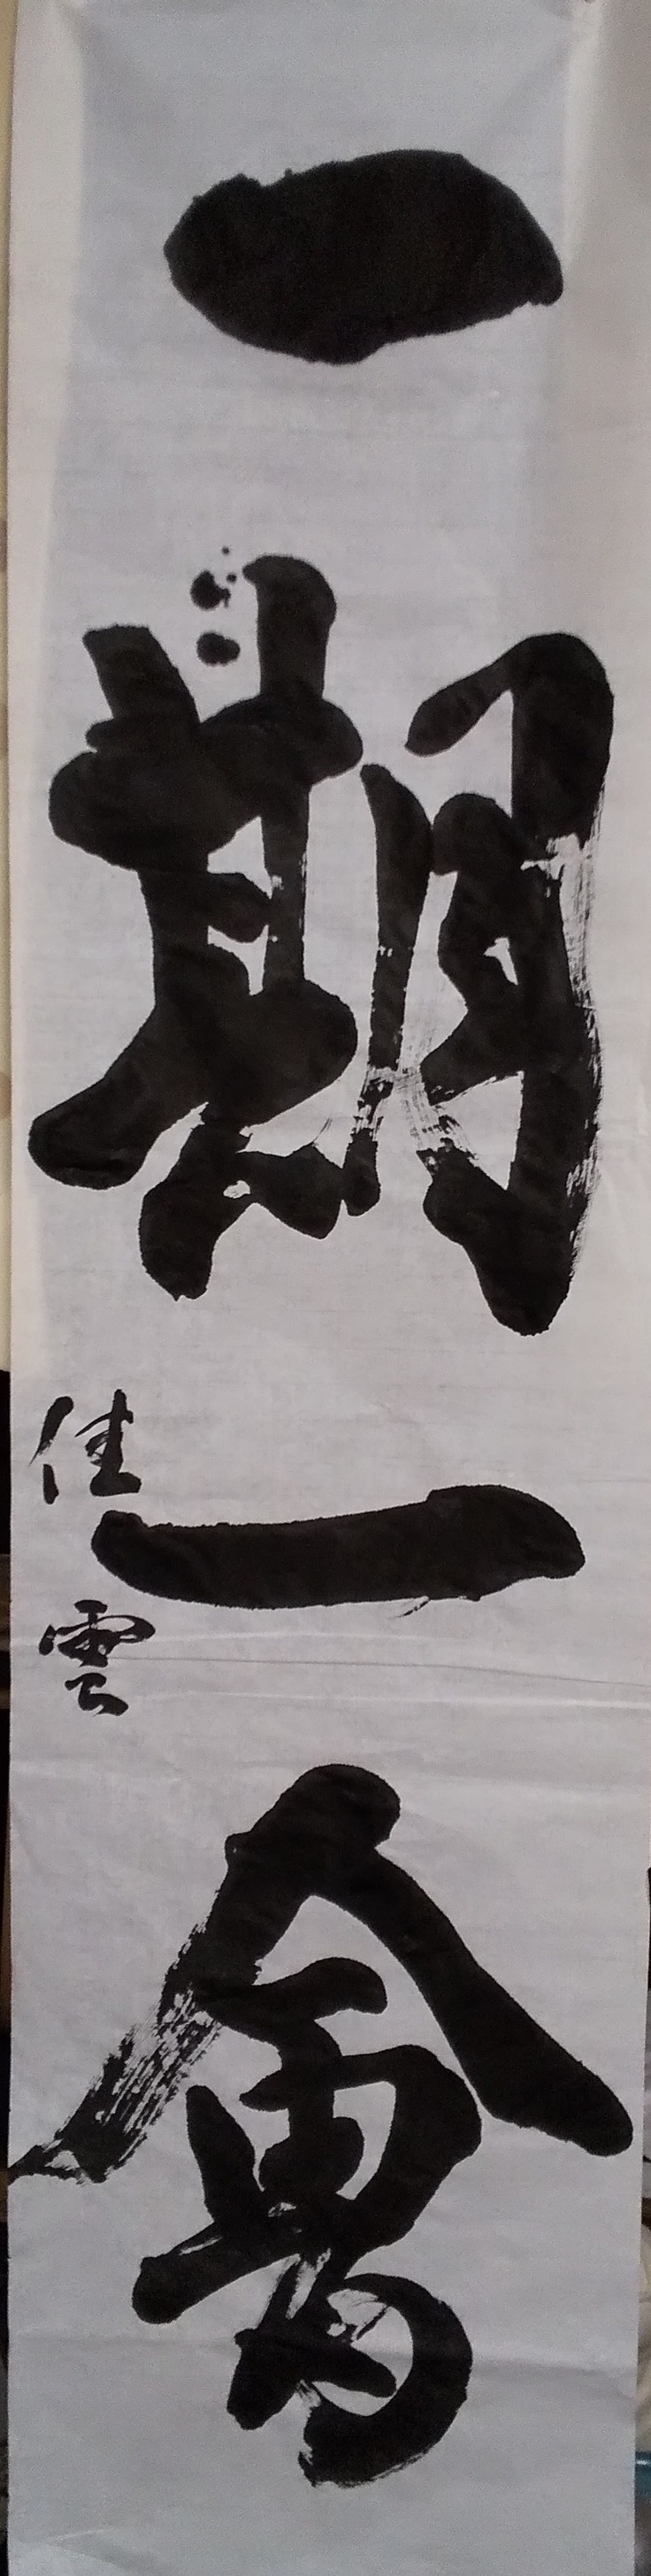 一期一會
佳雲